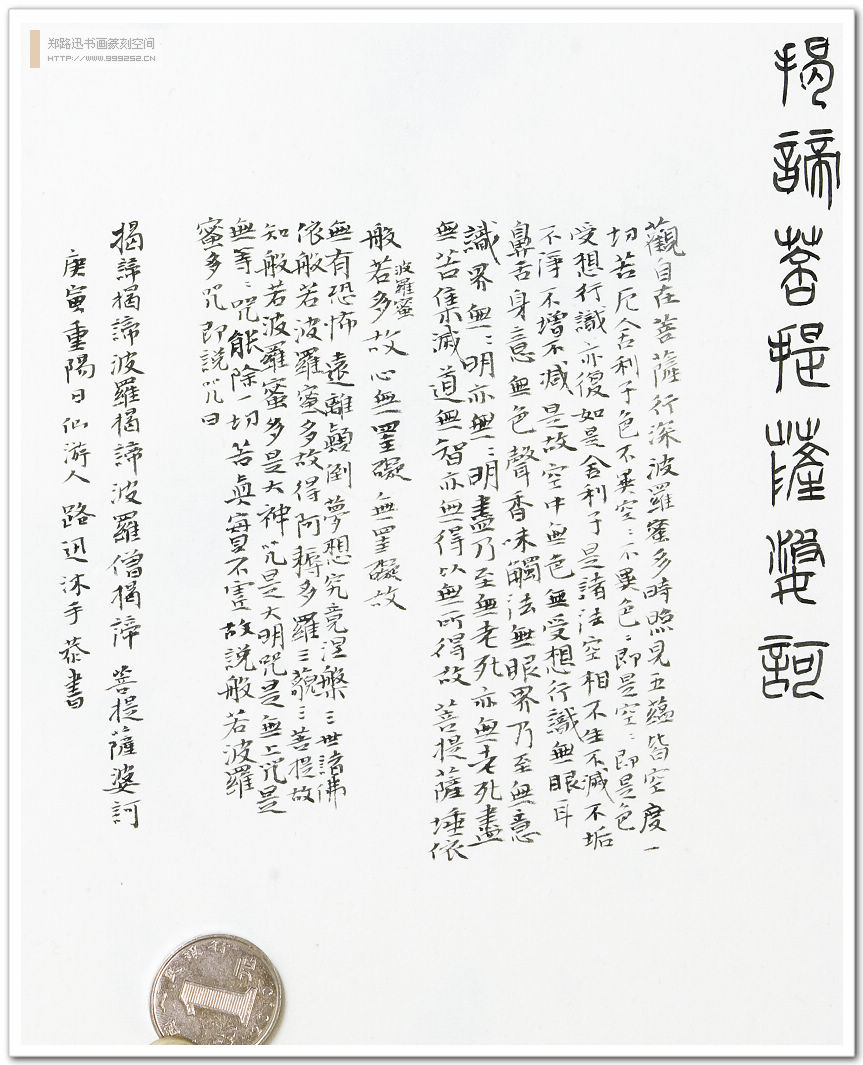 郑路迅书画篆刻空间
HTTP://WWW.999252.CN
揭諦菩提薩婆訶
觀自在菩薩行深波羅蜜多時照見五蘊皆空度一
切苦厄舍利子色不異空〻不異色〻即是空〻即是色
受想行識亦復如是舍利子是諸法空相不生不滅不垢
不淨不增不減是故空中無色無受想行識無眼耳
鼻舌身意無色聲香味觸法無眼界乃至無意
識界無〻明亦無〻明盡乃至無老死亦無老死盡
無苦集滅道無智亦無得以無所得故菩提薩埵依
般若波羅蜜多故心無罣礙無罣礙故
無有恐怖遠離顛倒夢想究竟涅槃三世諸佛
依般若波羅蜜多故得阿耨多羅三藐三菩提故
知般若波羅蜜多是大神咒是大明咒是無上咒是
無等〻咒能除一切苦真實不虛故說般若波羅
蜜多咒即說咒曰
揭諦揭諦波羅揭諦波羅僧揭諦菩提薩婆訶
庚寅重陽日仙游人路迅沐手恭書
1元